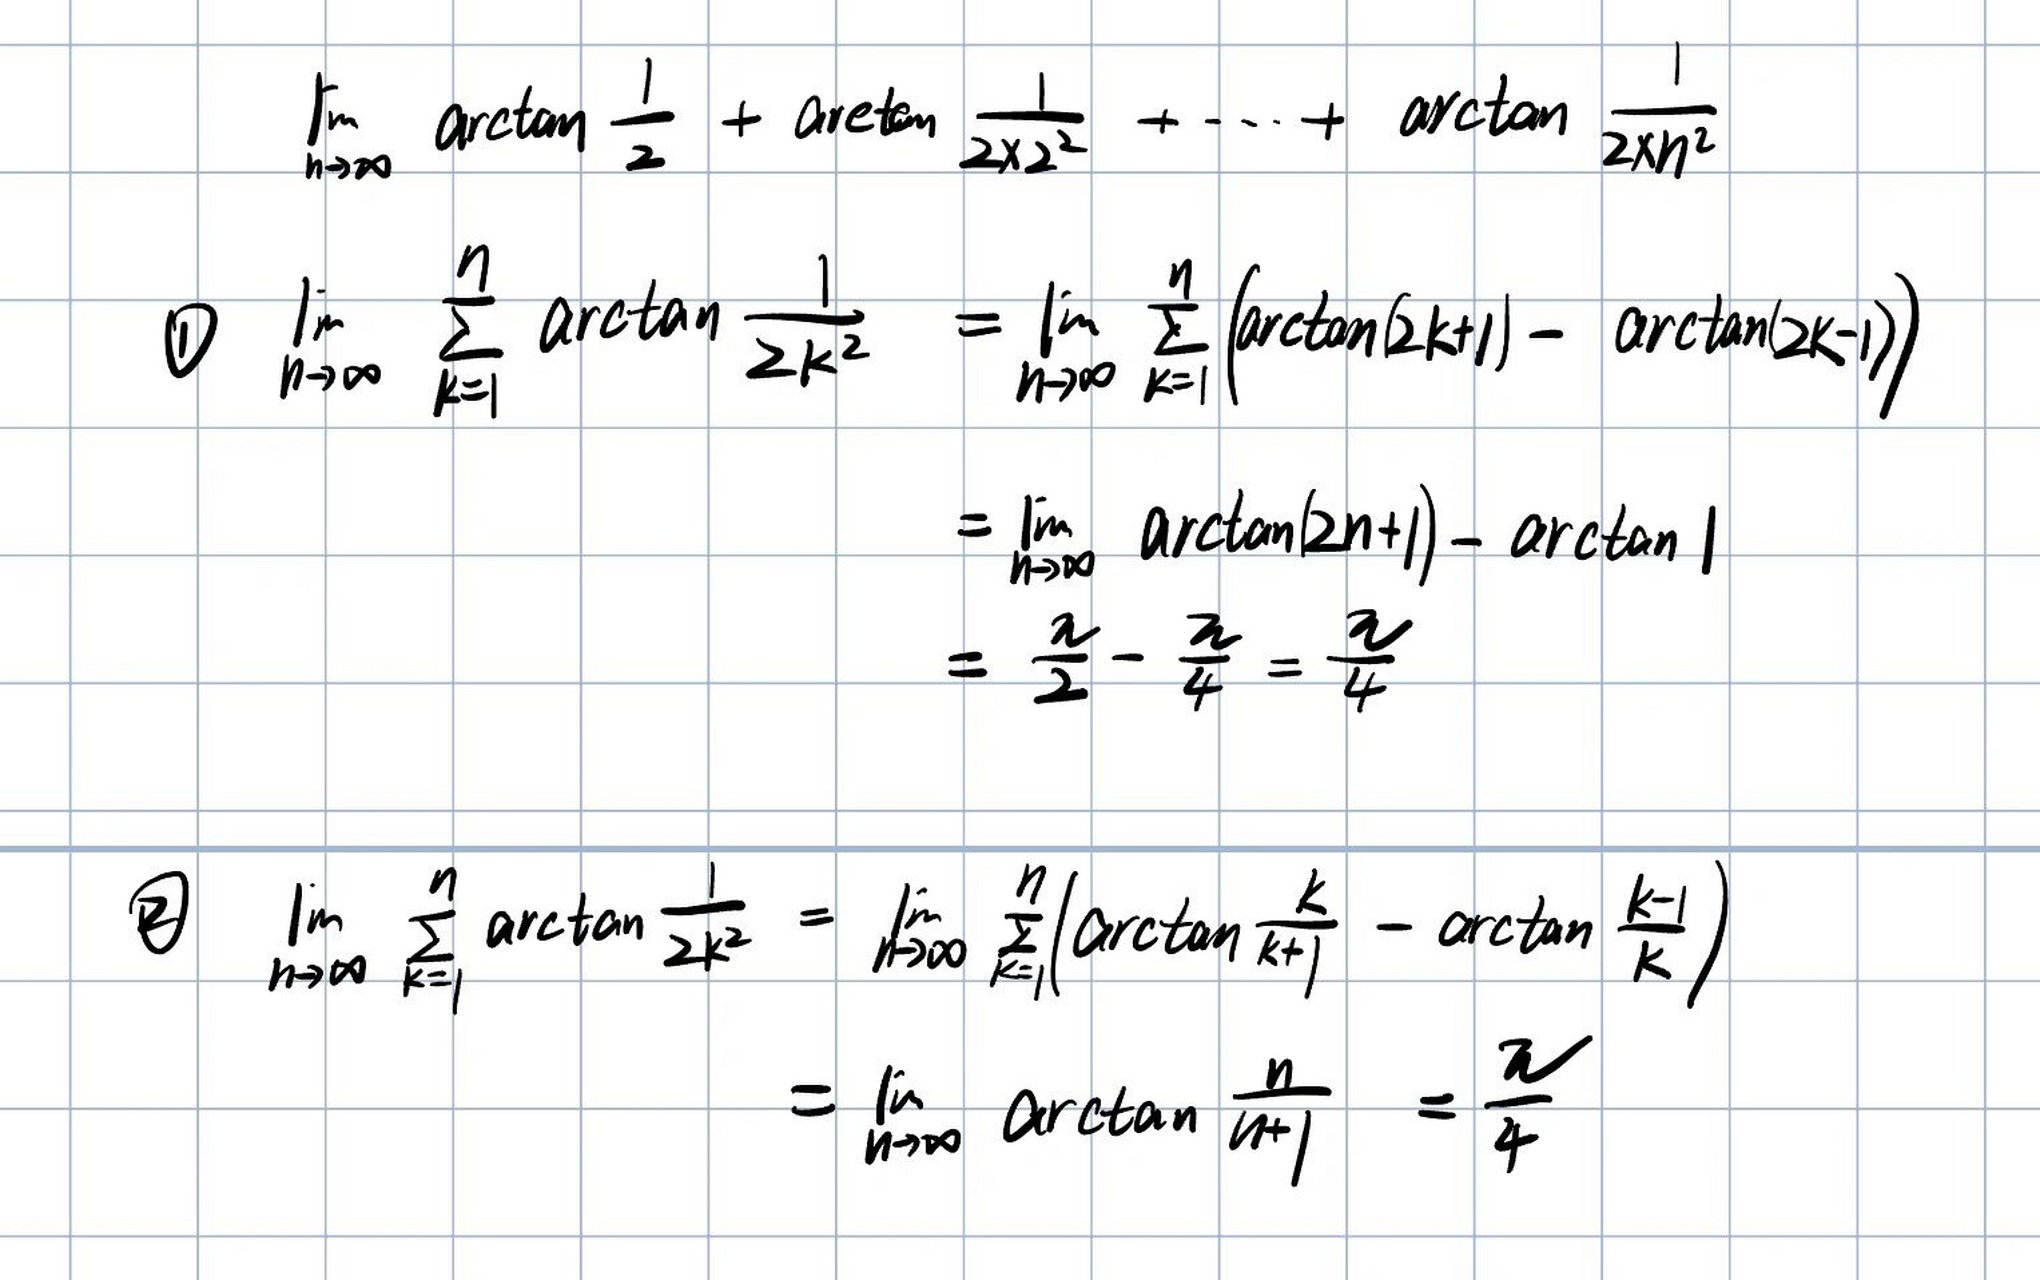 lim n→∞ arctan 1/2 + arctan 1/(2×2²) + ---- + arctan 1/(2×n²)
① lim n→∞ Σ k=1 n arctan 1/(2k²) = lim n→∞ Σ k=1 n (arctan(2k+1) - arctan(2k-1))
= lim n→∞ arctan(2n+1) - arctan 1
= π/2 - π/4 = π/4
② lim n→∞ Σ k=1 n arctan 1/(2k²) = lim n→∞ Σ k=1 n (arctan k/(k+1) - arctan (k-1)/k)
= lim n→∞ arctan n/(n+1) = π/4